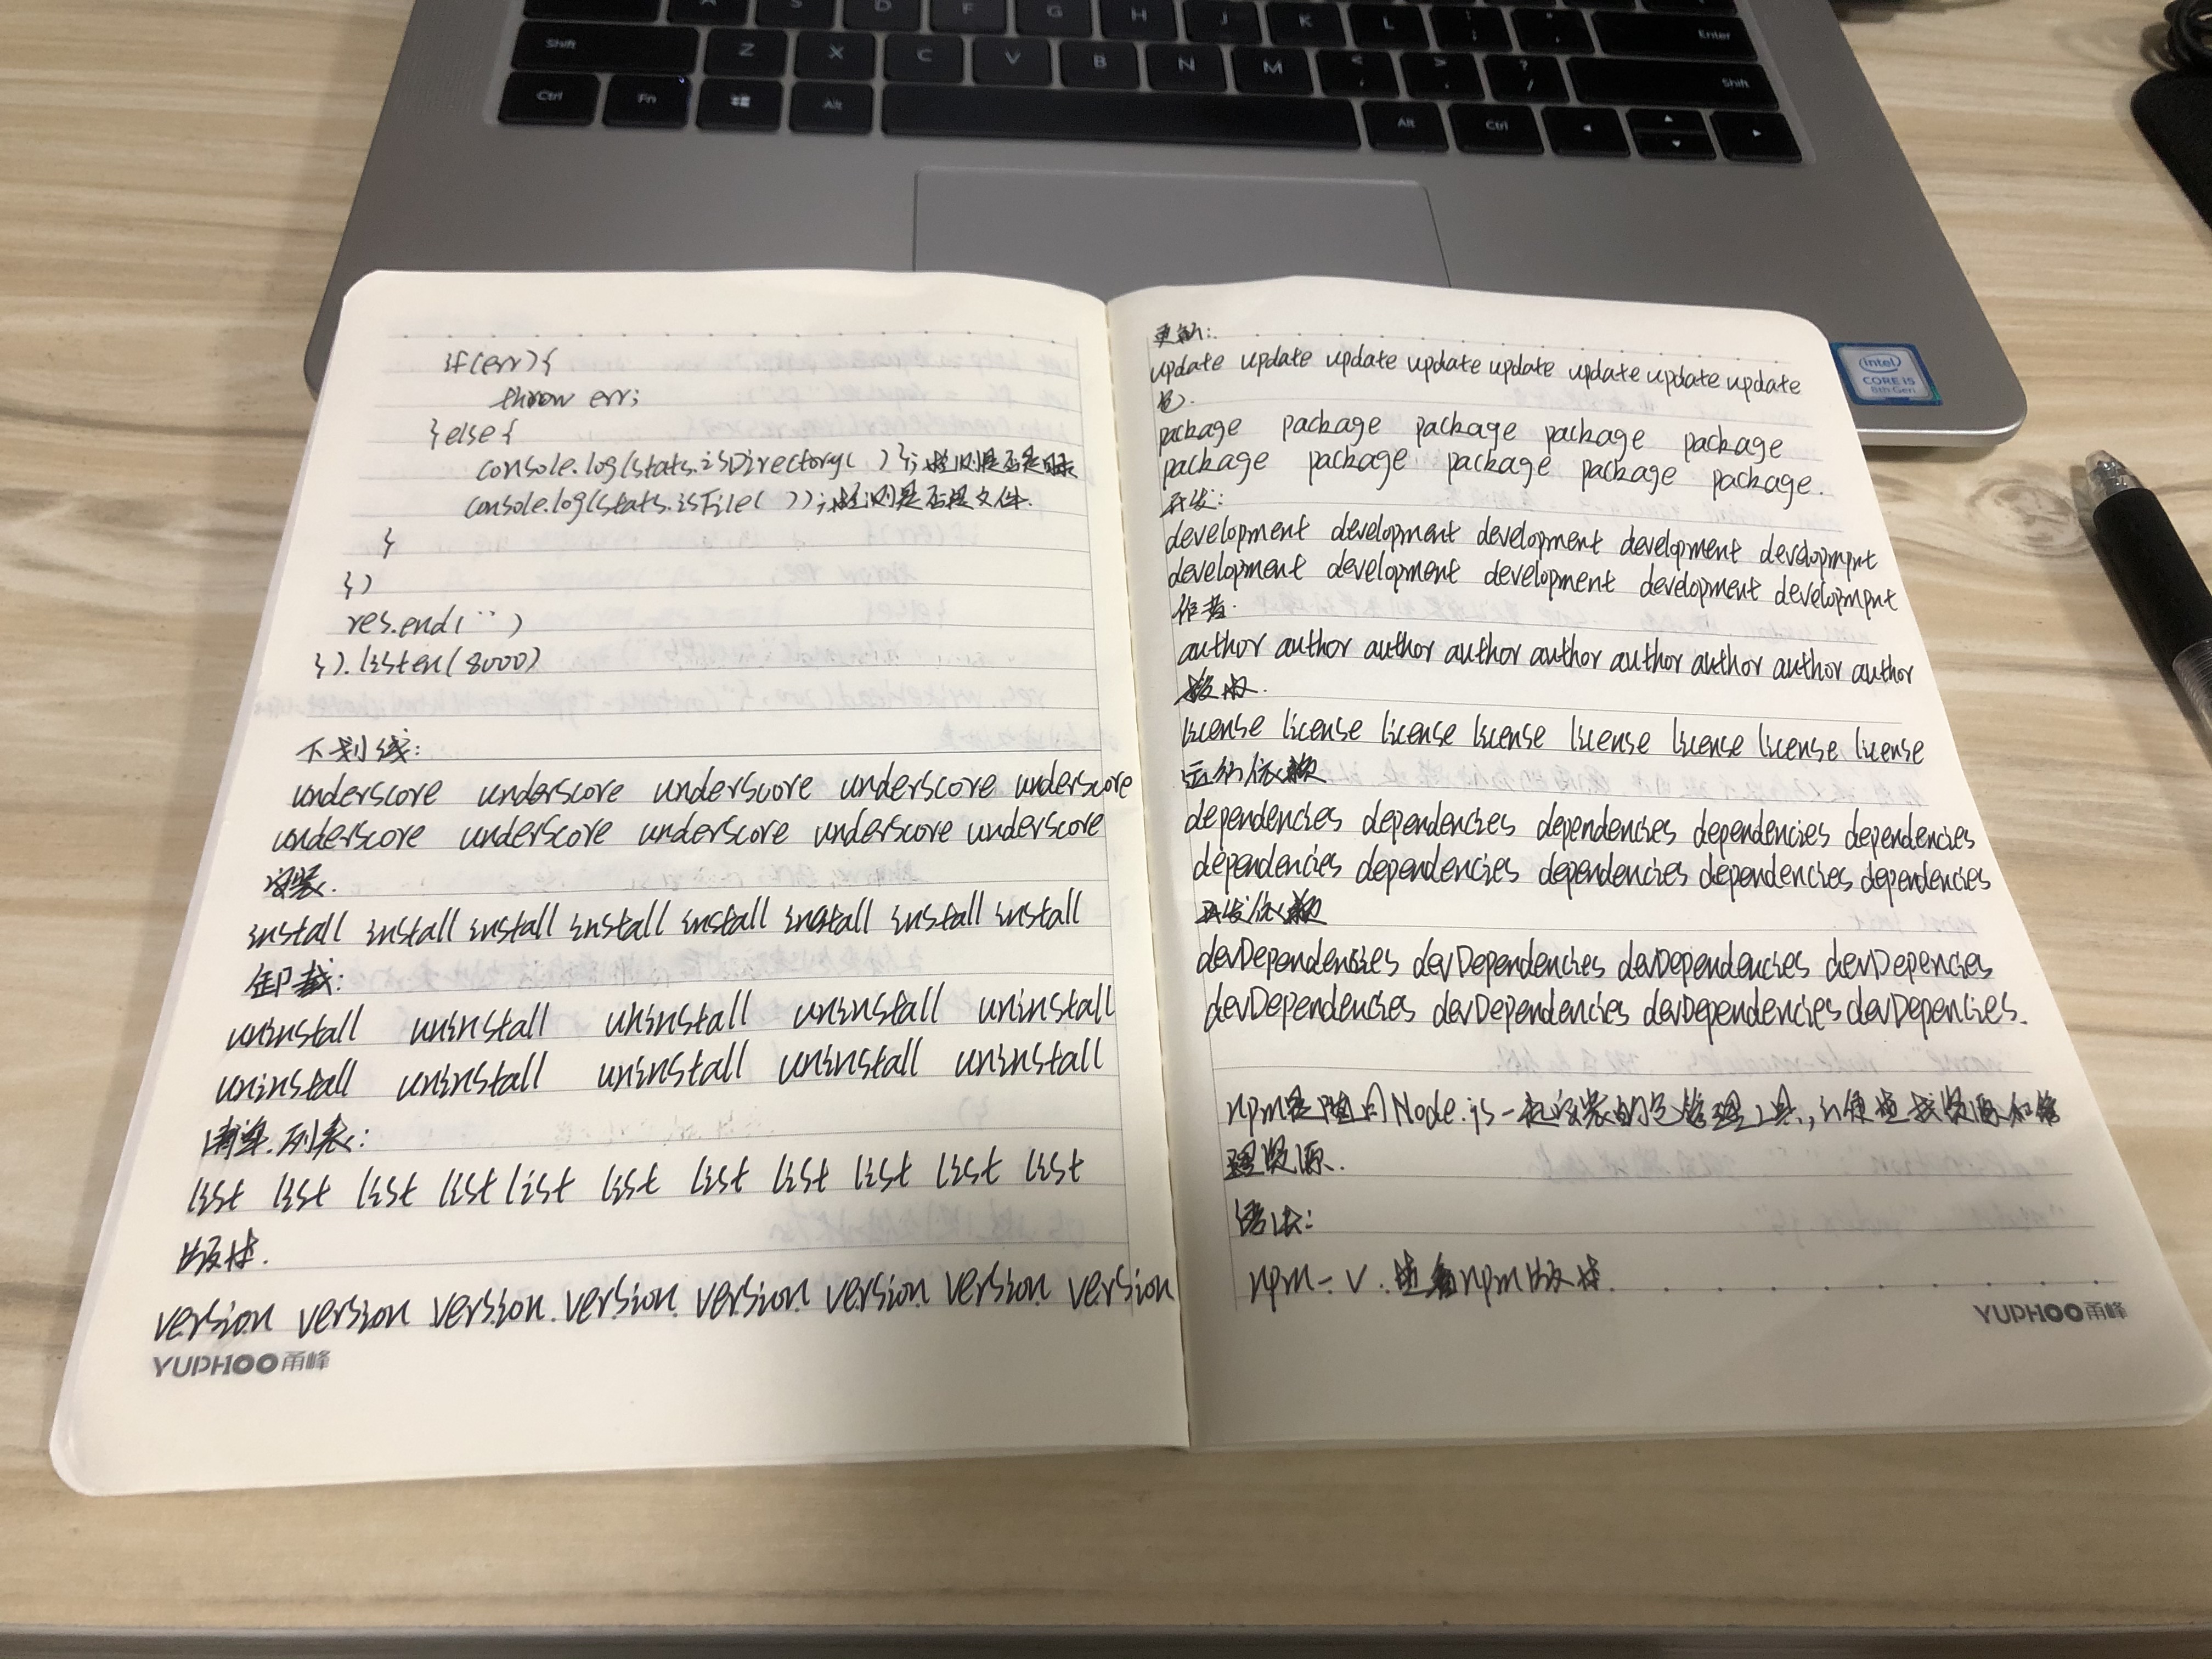 A S D F G H J K L : ; " ' Enter
Shift Z X C V B N M < , > . ? / Shift
Ctrl Fn Alt Alt Ctrl
intel
CORE i5
8th Gen
if(err){
throw err;
}else{
console.log(stats.isDirectory( ) };检测是否是目录
console.log(stats.isFile( ));检测是否是文件.
}
})
res.end('' )
}).listen(8000)
下划线:
underscore underscore underscore underscore underscore
underscore underscore underscore underscore underscore
安装.
install install install install install install install install
卸载:
uninstall uninstall uninstall uninstall uninstall
uninstall uninstall uninstall uninstall uninstall
清单.列表:
list list list list list list list list list list list
版本.
version version version version version version version version
YUPHOO甬峰
更新:
update update update update update update update update
包.
package package package package package
package package package package package.
开发:
development development development development development
development development development development development
作者.
author author author author author author author author author
授权.
license license license license license license license license
运行依赖
dependencies dependencies dependencies dependencies dependencies
dependencies dependencies dependencies dependencies dependencies
开发依赖
devDependencies devDependencies devDependencies devDepencies
devDependencies devDependencies devDependencies devDepencies.
npm是随同Node.js一起安装的包管理工具,方便查找资源和管
理资源.
语法:
npm - v .查看npm版本.
YUPHOO甬峰